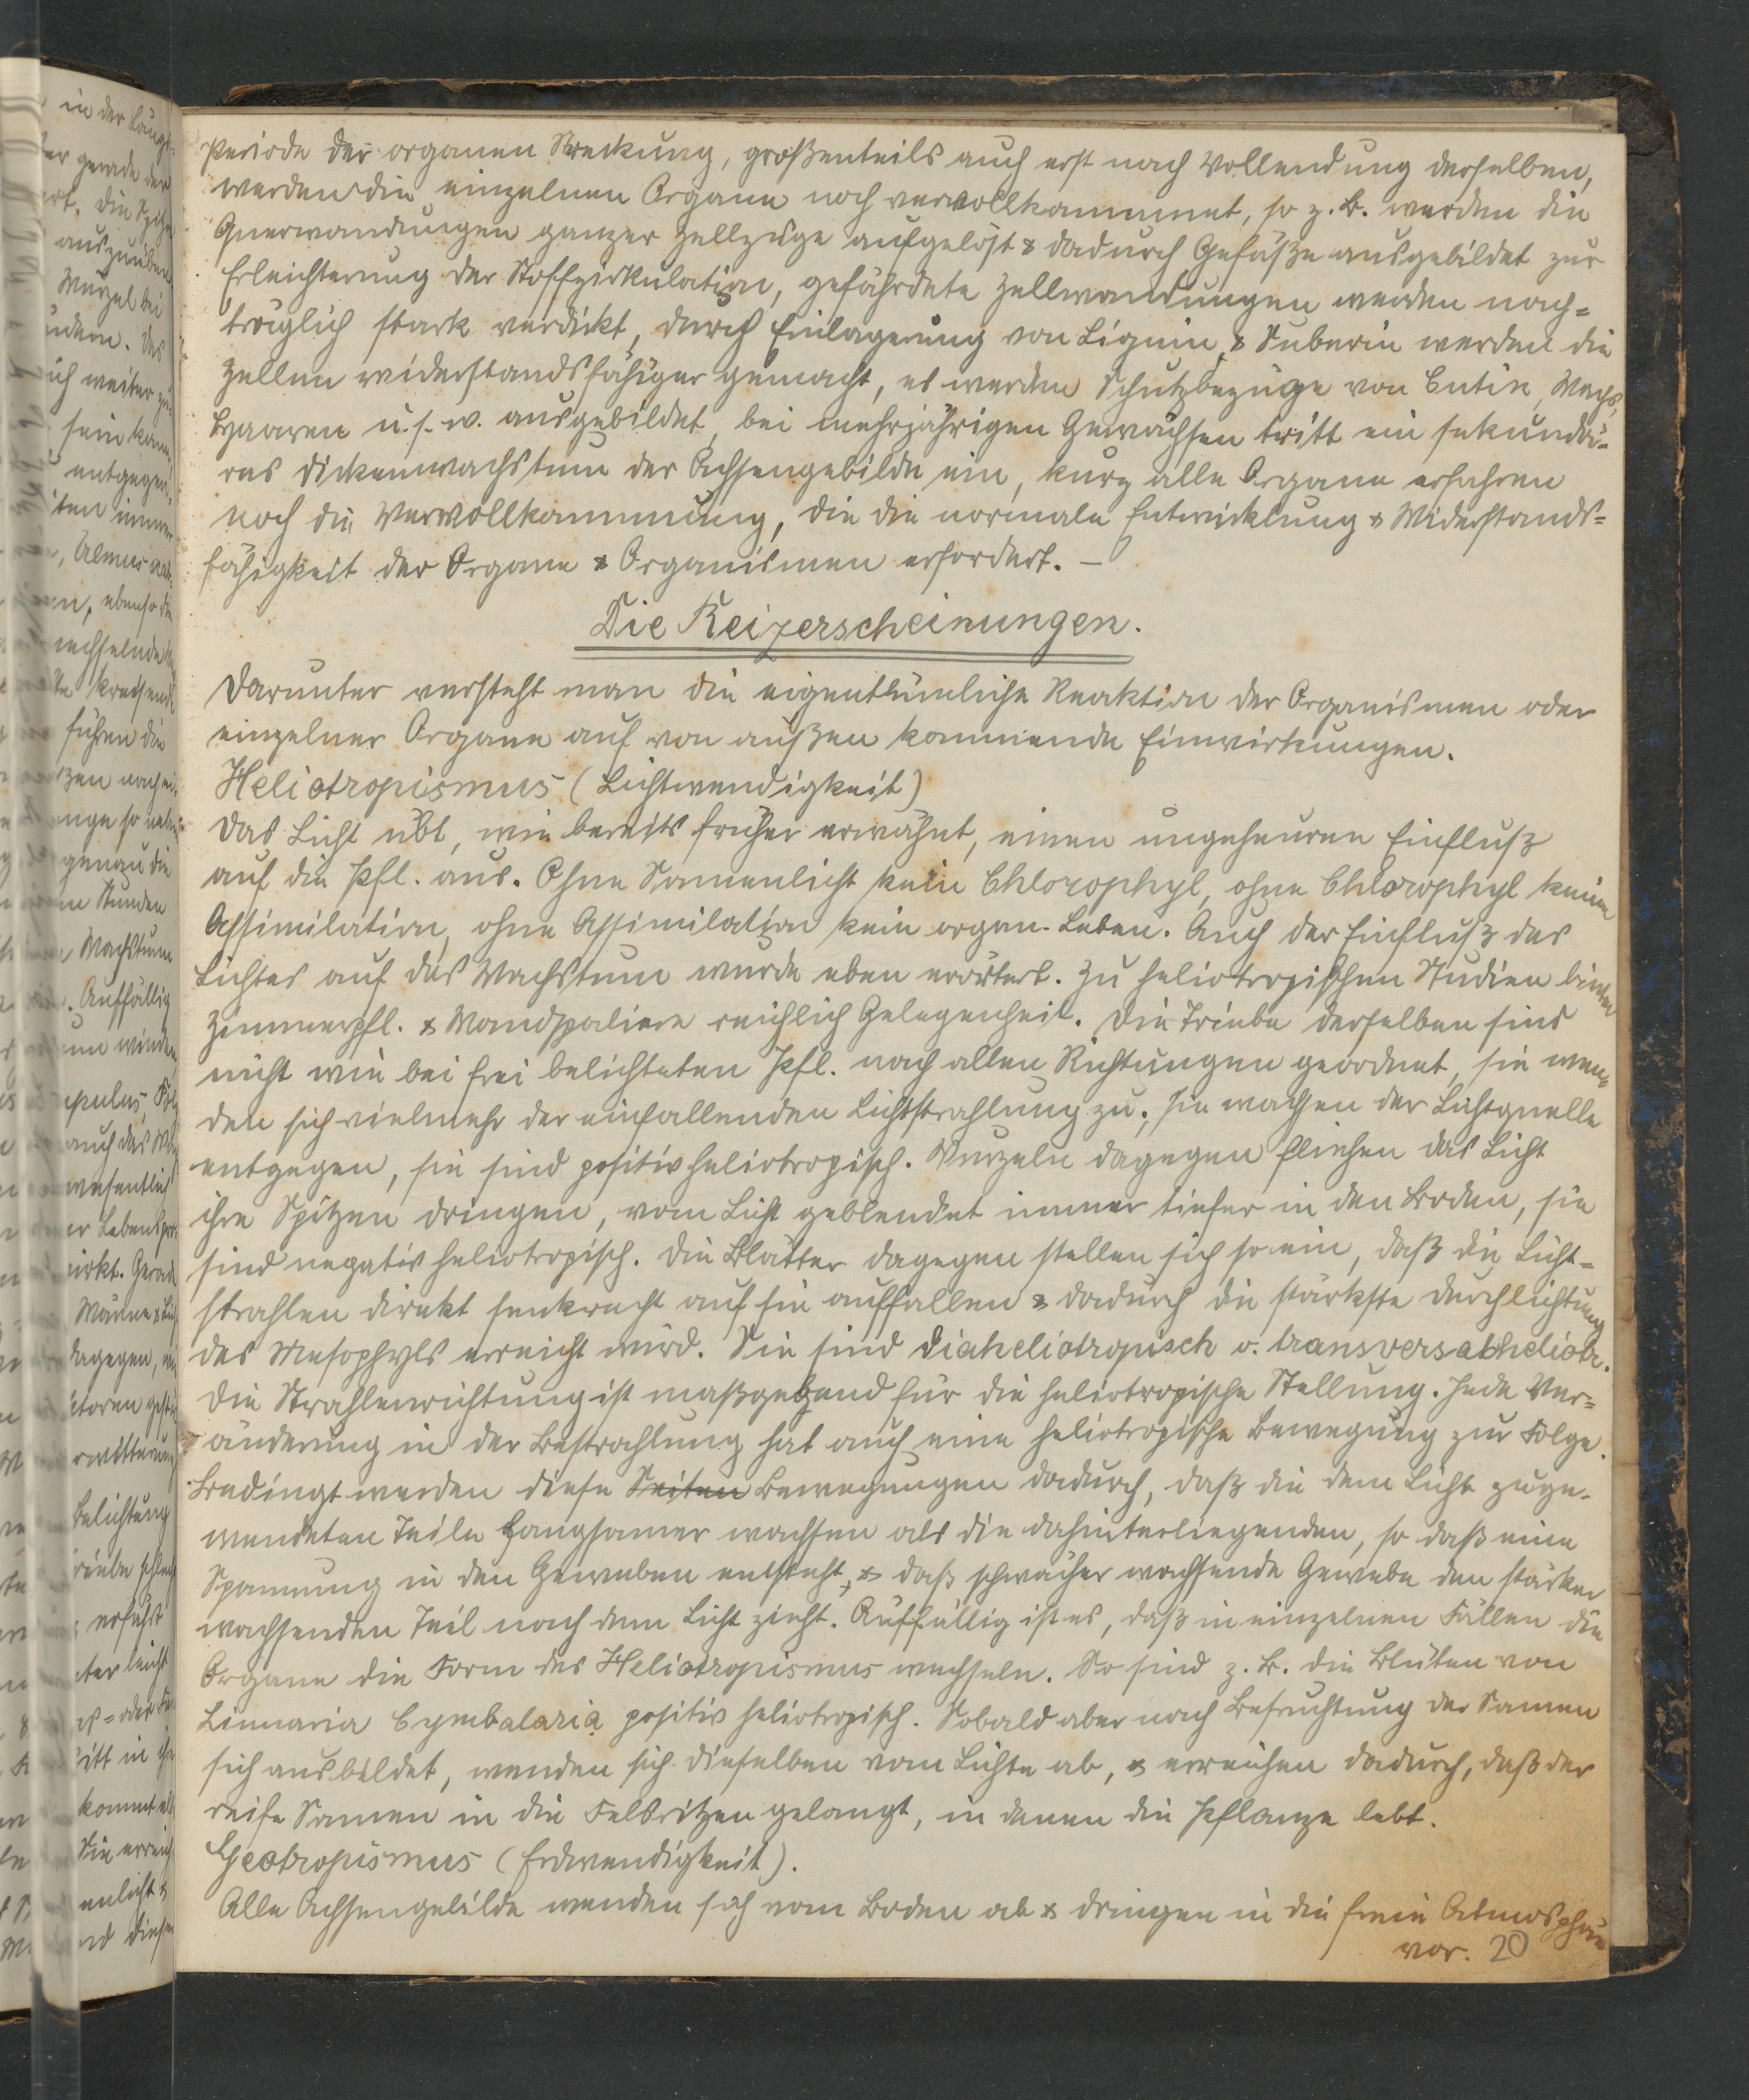 Periode der organen Streckung, großenteils auch erst nach Vollendung derselben,
werden die einzelnen Organe noch vervollkommnet, so z. B. werden die
Querwandungen ganzer Zellzüge aufgelöst & dadurch Gefäße ausgebildet zur
Erleichterung der Stoffzirkulation, gefährdete Zellwandungen werden nach=
träglich stark verdickt, durch Einlagerung von Lignin & Suberin werden die
Zellen widerstandsfähiger gemacht, es werden Schutzbezüge von Cutin, Wachs,
Haaren u. s. w. ausgebildet, bei mehrjährigen Gewächsen tritt ein sekundä=
res Dickenwachstum der Achsengebilde ein, kurz alle Organe erfahren
noch die Vervollkommnung, die die normale Entwicklung & Widerstands=
fähigkeit der Organe & Organismen erfordert. —
Die Reizerscheinungen.
Darunter versteht man die eigentümliche Reaktion der Organismen oder
einzelner Organe auf von außen kommende Einwirkungen.
Heliotropismus (Lichtwendigkeit)
Das Licht übt, wie bereits früher erwähnt, einen ungeheuren Einfluß
auf die Pfl. aus. Ohne Sonnenlicht kein Chlorophyl, ohne Chlorophyl keine
Assimilation, ohne Assimilation kein organ. Leben. Auch der Einfluß des
Lichtes auf das Wachstum wurde eben erörtert. Zu heliotropischen Studien bieten
Zimmerpfl. & Wandspaliere reichlich Gelegenheit. Die Triebe derselben sind
nicht wie bei frei belichteten Pfl. nach allen Richtungen geordnet, sie wen=
den sich vielmehr der einfallenden Lichtstrahlung zu; sie wachsen der Lichtquelle
entgegen, sie sind positiv heliotropisch. Wurzeln dagegen fliehen das Licht
ihre Spitzen dringen, vom Licht geblendet immer tiefer in den Boden, sie
sind negativ heliotropisch. Die Blätter dagegen stellen sich so ein, daß die Licht=
strahlen direkt senkrecht auf sie auffallen & dadurch die stärkste Durchlichtung
des Mesophyls erreicht wird. Sie sind diaheliotropisch o. transversalheliotr.
Die Strahlenrichtung ist maßgebend für die heliotropische Stellung. Jede Ver=
änderung in der Bestrahlung hat auch eine heliotropische Bewegung zur Folge.
Bedingt werden diese Seiten Bewegungen dadurch, daß die dem Licht zuge=
wendeten Teile langsamer wachsen als die dahinterliegenden, so daß eine
Spannung in den Geweben entsteht, & daß schwächer wachsende Gewebe den stärker
wachsenden Teil nach dem Licht zieht. Auffällig ist es, daß in einzelnen Fällen die
Organe die Form des Heliotropismus wechseln. So sind z. B. die Blüten von
Linnaria Cymbalaria positiv heliotropisch. Sobald aber nach Befruchtung der Samen
sich ausbildet, wenden sich dieselben vom Lichte ab, & erreichen dadurch, daß der
reife Samen in die Felsritzen gelangt, in denen die Pflanze lebt.
Geotropismus (Erdwendigkeit).
Alle Achsengebilde wenden sich vom Boden ab & dringen in die freie Atmosphäre
vor. 20